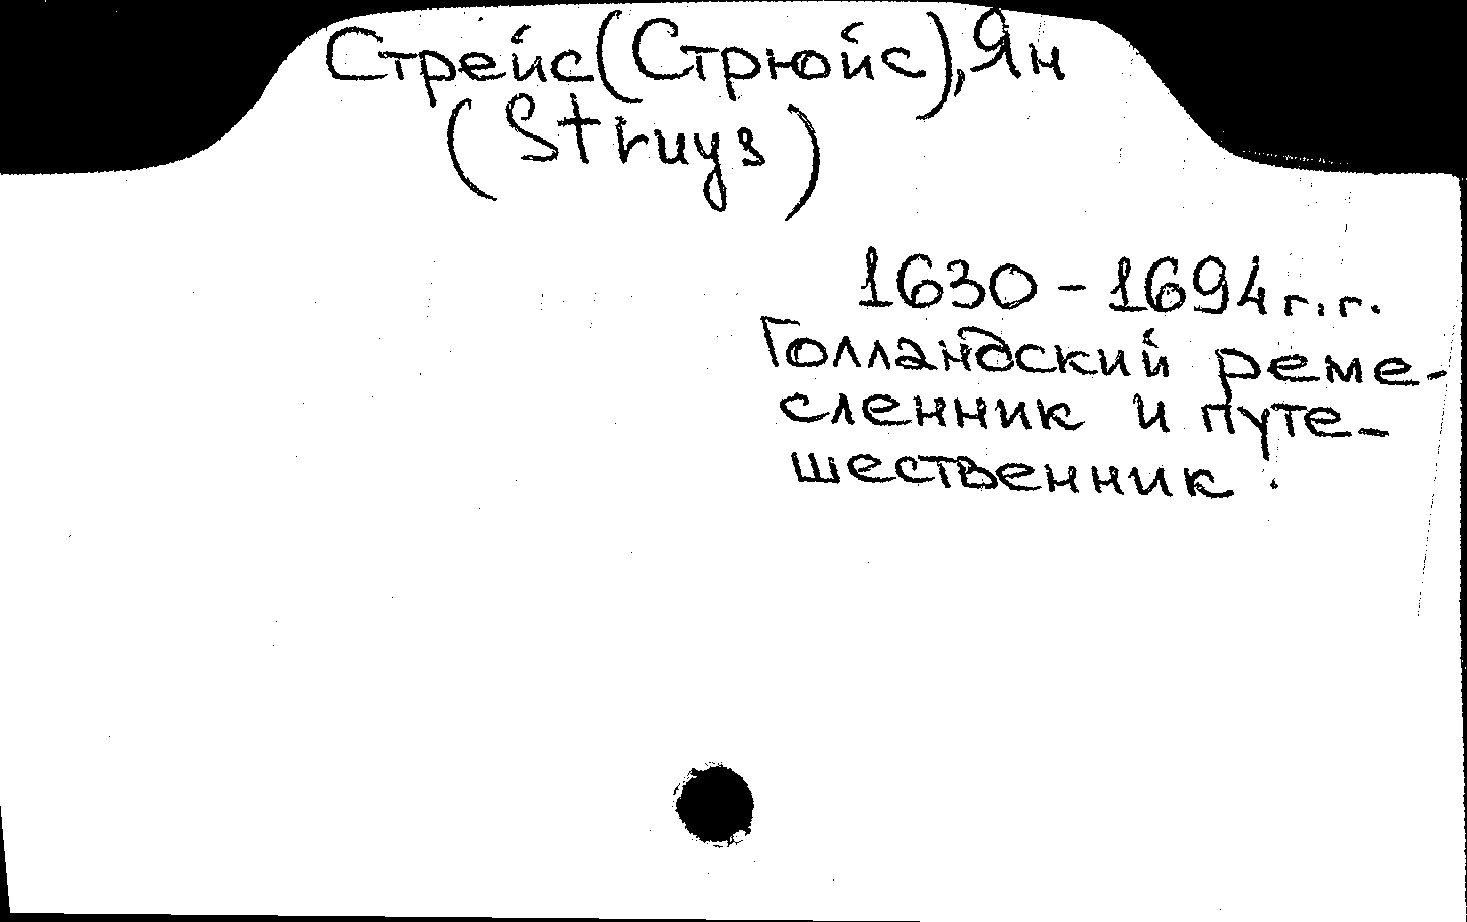 Стрейс (Стрюйс), Ян
(Struys)
1630 - 1694 г.г.
Голландский реме-
сленник и путе-
шественник.